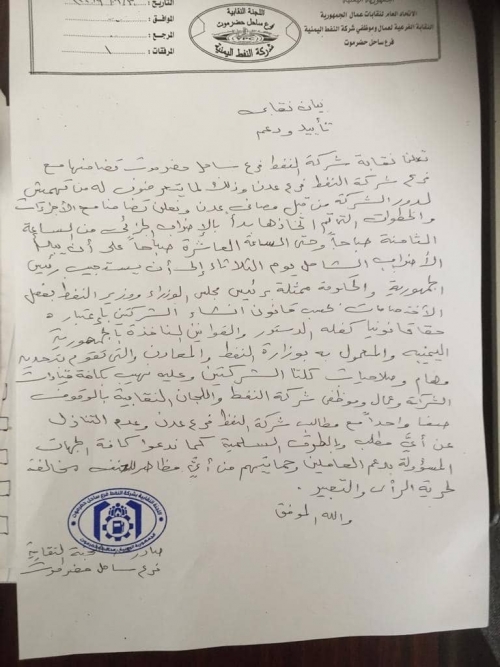 اللجنة النقابية
فرع ساحل حضرموت
شركة النفط اليمنية
الاتحاد العام لنقابات عمال الجمهورية
النقابة الفرعية لعمال وموظفي شركة النفط اليمنية
فرع ساحل حضرموت
التاريخ:
الموافق:
المرجع:
المرفقات: ١
بيان نقابي
تأييد ودعم
تعلن نقابة شركة النفط فرع ساحل حضرموت تضامنها مع
فرع شركة النفط فرع عدن وذلك لما يتعرضون له من تهميش
لدور الشركة من قبل مصافي عدن ونعلن تضامننا مع الإجراءات
والخطوات التي تم اتخاذها بدأ بالإضراب الجزئي من الساعة
الثامنة صباحاً وحتى الساعة العاشرة صباحاً على أن يبدأ
الإضراب الشامل يوم الثلاثاء إلى أن يستجيب رئيس
الجمهورية والحكومة ممثلة برئيس مجلس الوزراء ووزير النفط بفصل
الاختصاصات بحسب قانون انشاء الشركتين بإعتباره
حقا قانونيا كفله الدستور والقوانين النافذة بالجمهورية
اليمنية والمعمول به بوزارة النفط والمعادن والتي تقوم بتحديد
مهام وصلاحيات كلتا الشركتين وعليه نهيب كافة قيادات
الشركة وعمال وموظفي شركة النفط واللجان النقابية بالوقوف
صفا واحداً مع مطالب شركة النفط فرع عدن وعدم التنازل
عن أي مطلب وبالطرق السلمية كما ندعوا كافة الجهات
المسؤولة بدعم العاملين وحمايتهم من أي مظاهر للعنف مخالفة
لحرية الرأى والتعبير.
والله الموفق
اللجنة النقابية شركة النفط فرع ساحل حضرموت
صادر النقابية
فرع ساحل حضرموت